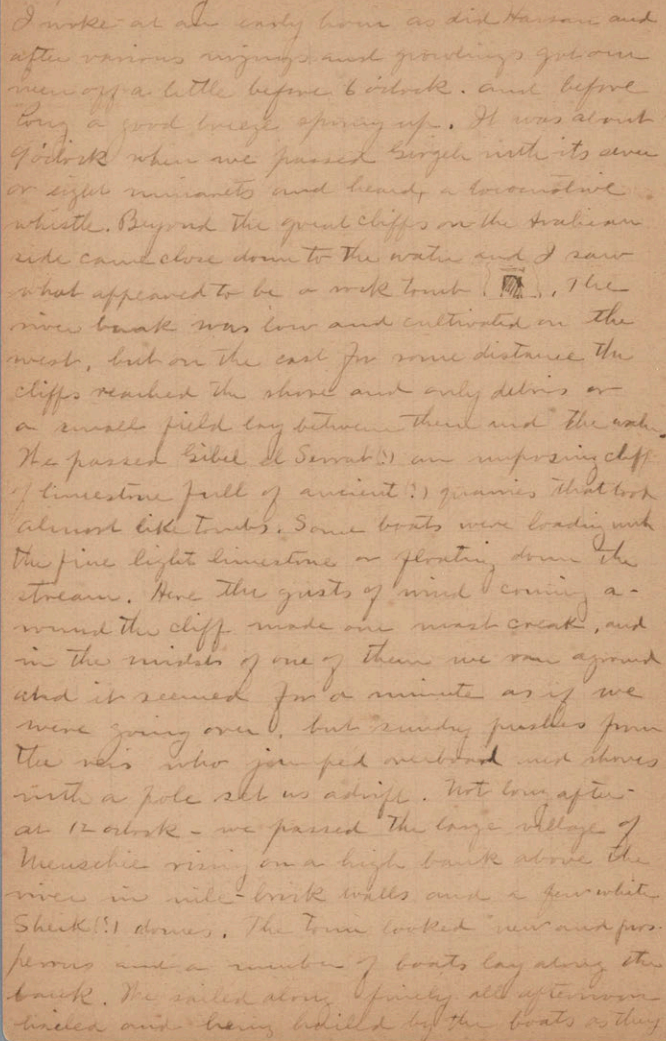 I woke at an early hour as did Hassan and
after various risings and growlings got our
men off a little before 6 o'clock. and before
long a good breeze sprung up. It was about
9 o'clock when we passed Girgeh with its seven
or eight minarets and heard, a locomotive
whistle. Beyond the great cliffs on the Arabian
side came close down to the water and I saw
what appeared to be a rock tomb. The
river bank was low and cultivated on the
west, but on the east for some distance the
cliffs reached the shore and only debris or
a small field lay between them and the water
We passed Gibel el Serrat(?) an imposing cliff
of limestone full of ancient(?) quarries that look
almost like tombs. Some boats were loading with
the fine light limestone or floating down the
stream. Here the gusts of wind coming a-
round the cliff made our mast creak, and
in the midst of one of them we ran aground
and it seemed for a minute as if we
were going over, but sundry pushes from
the reis who jumped overboard and shoves
with a pole set us adrift. Not long after-
at 12 oclock - we passed the large village of
Menschie rising on a high bank above the
river in nile-brick walls and a few white
Sheik(?) domes. The town looked new and pros-
perous and a number of boats lay along the
bank. We sailed along finely all afternoon
hailed and being hailed by the boats as they